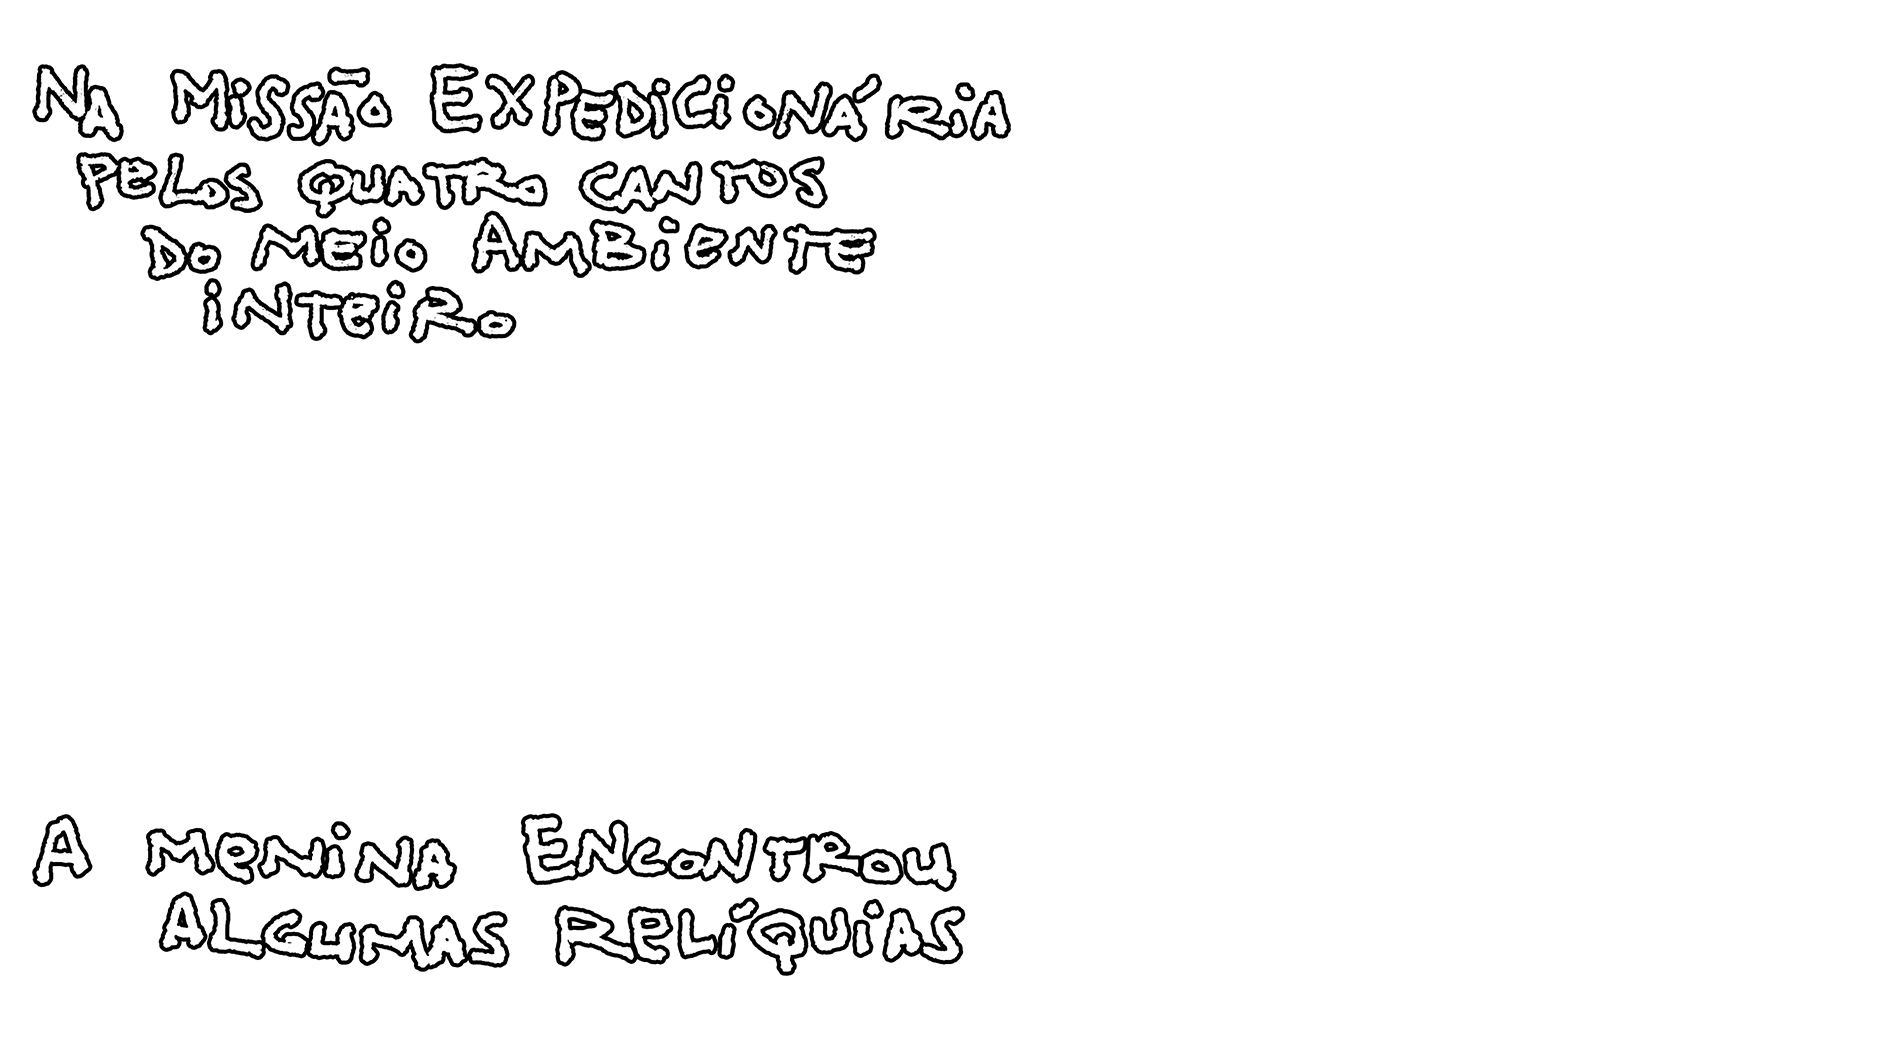 Na Missão Expedicionária
pelos quatro cantos
do meio Ambiente
inteiro
A menina Encontrou
Algumas Relíquias